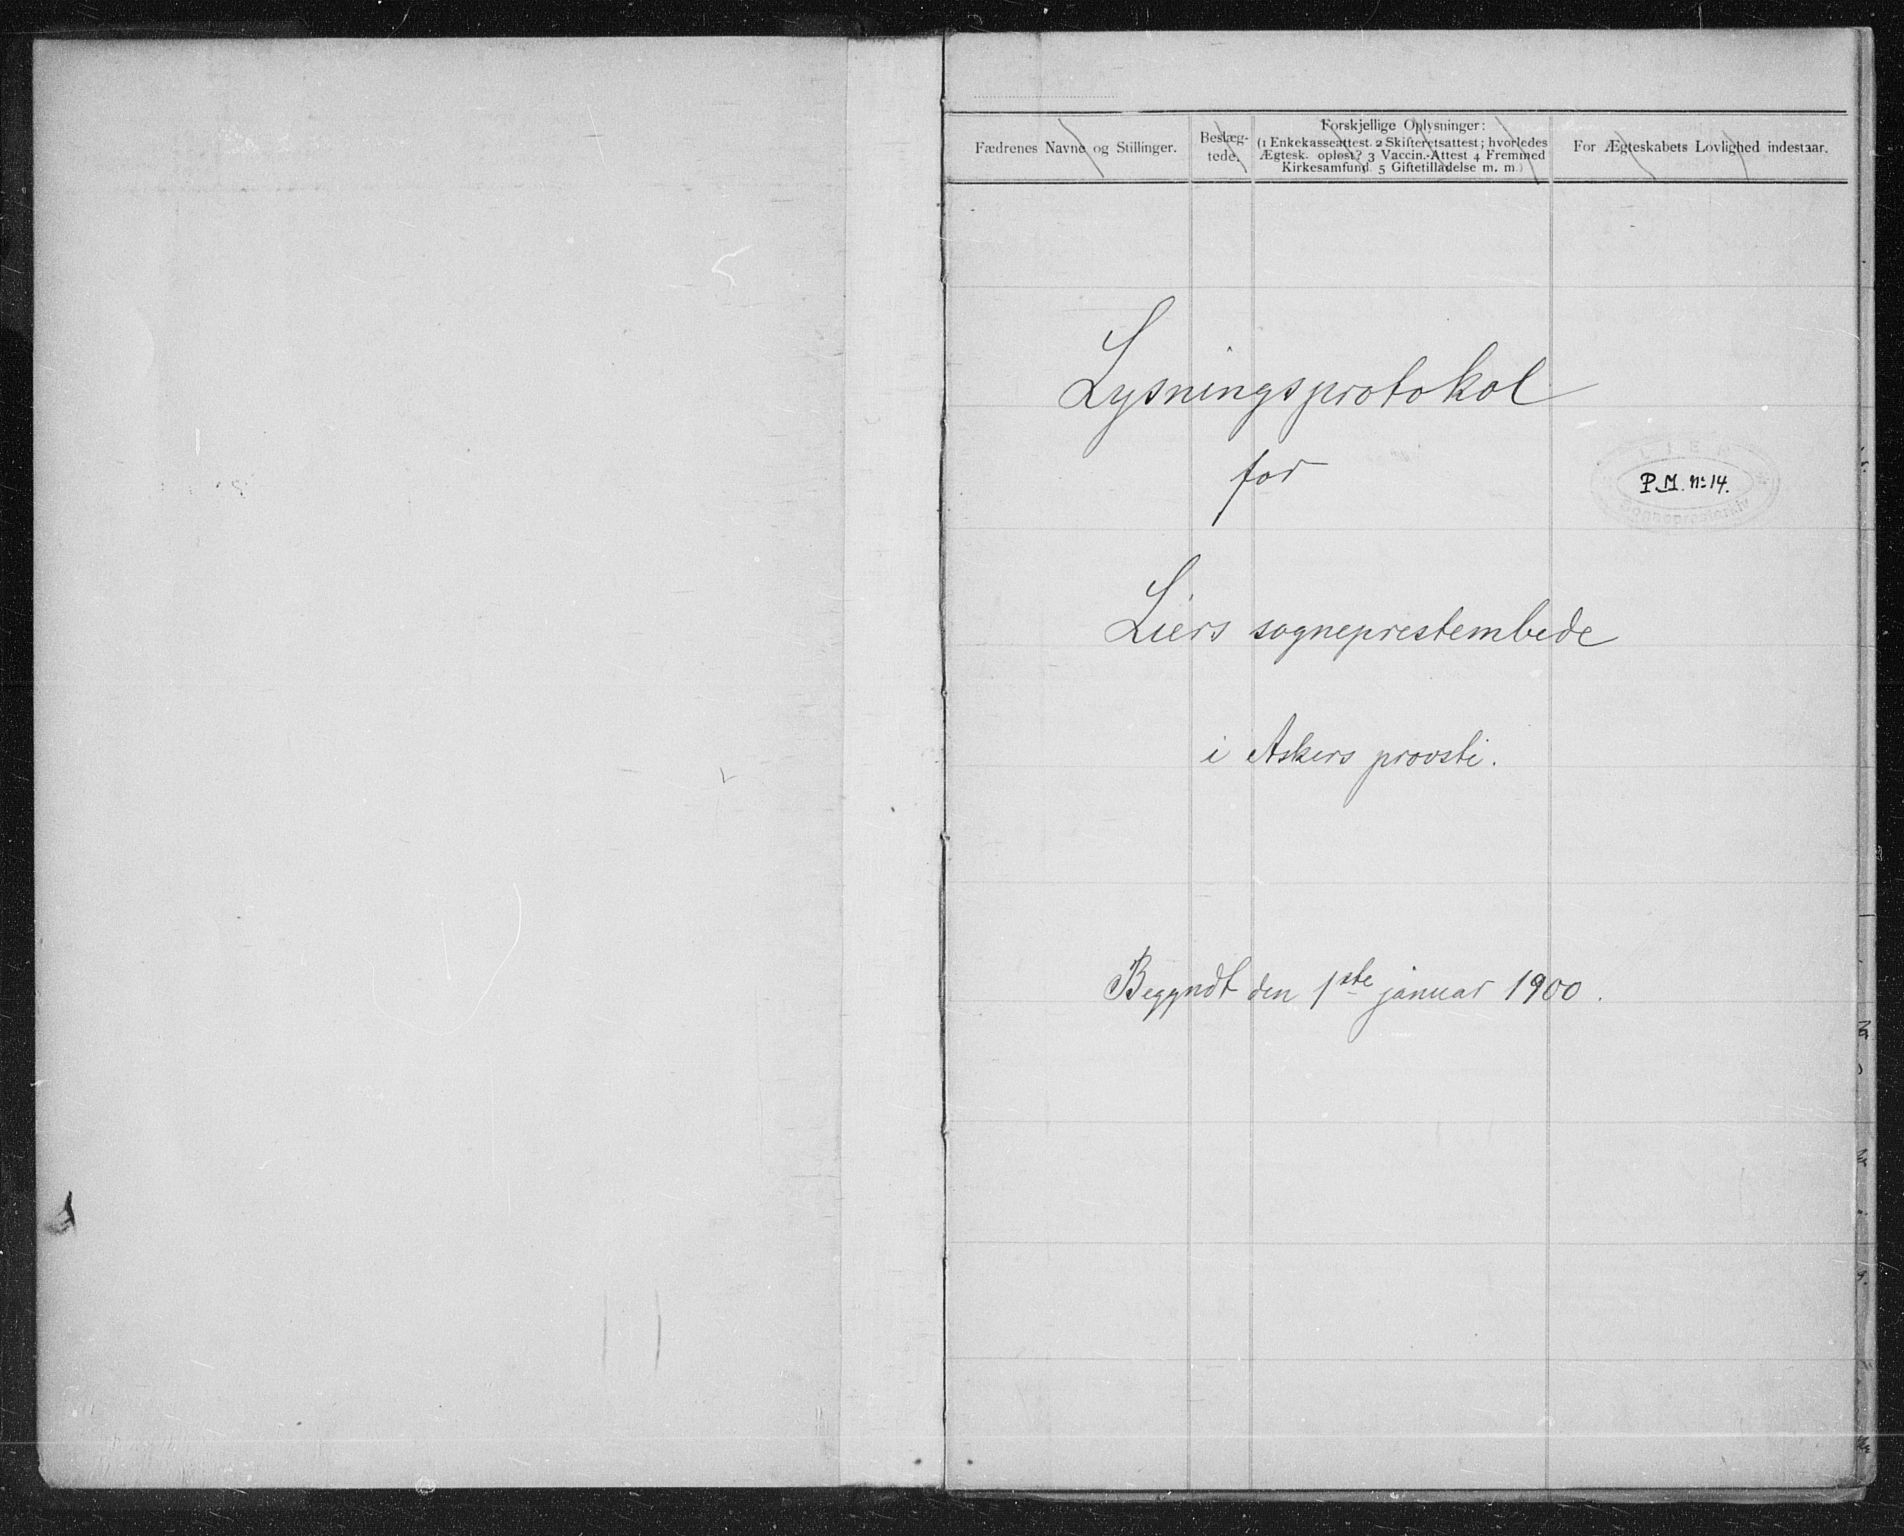 Fædrenes Navne og Stillinger.
Beslæg-
tede.
Forskjellige Oplysninger:
(1 Enkekasseattest. 2 Skifteretsattest; hvorledes
Ægtesk. opløst? 3 Vaccin.-Attest 4 Fremmed
Kirkesamfund. 5 Giftetilladelse m. m.)
For Ægteskabets Lovlighed indestaar.
Lysningsprotokol
for
LIER
P.M. No 14.
Sogneprestarkiv
Liers sogneprestembede
i Askers provsti.
Begyndt den 1ste januar 1900.